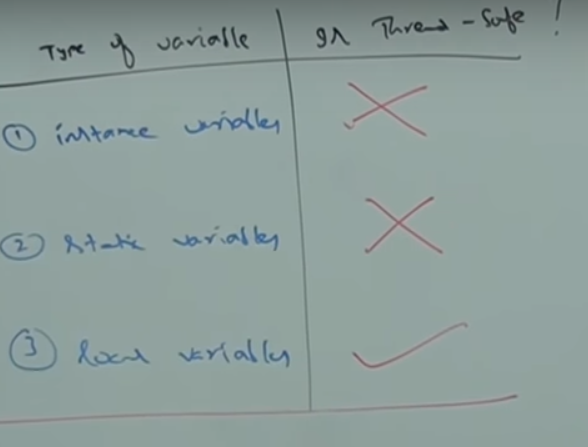 Type of variable Is Thread-Safe!
① instance variables
② static variables
③ local variables